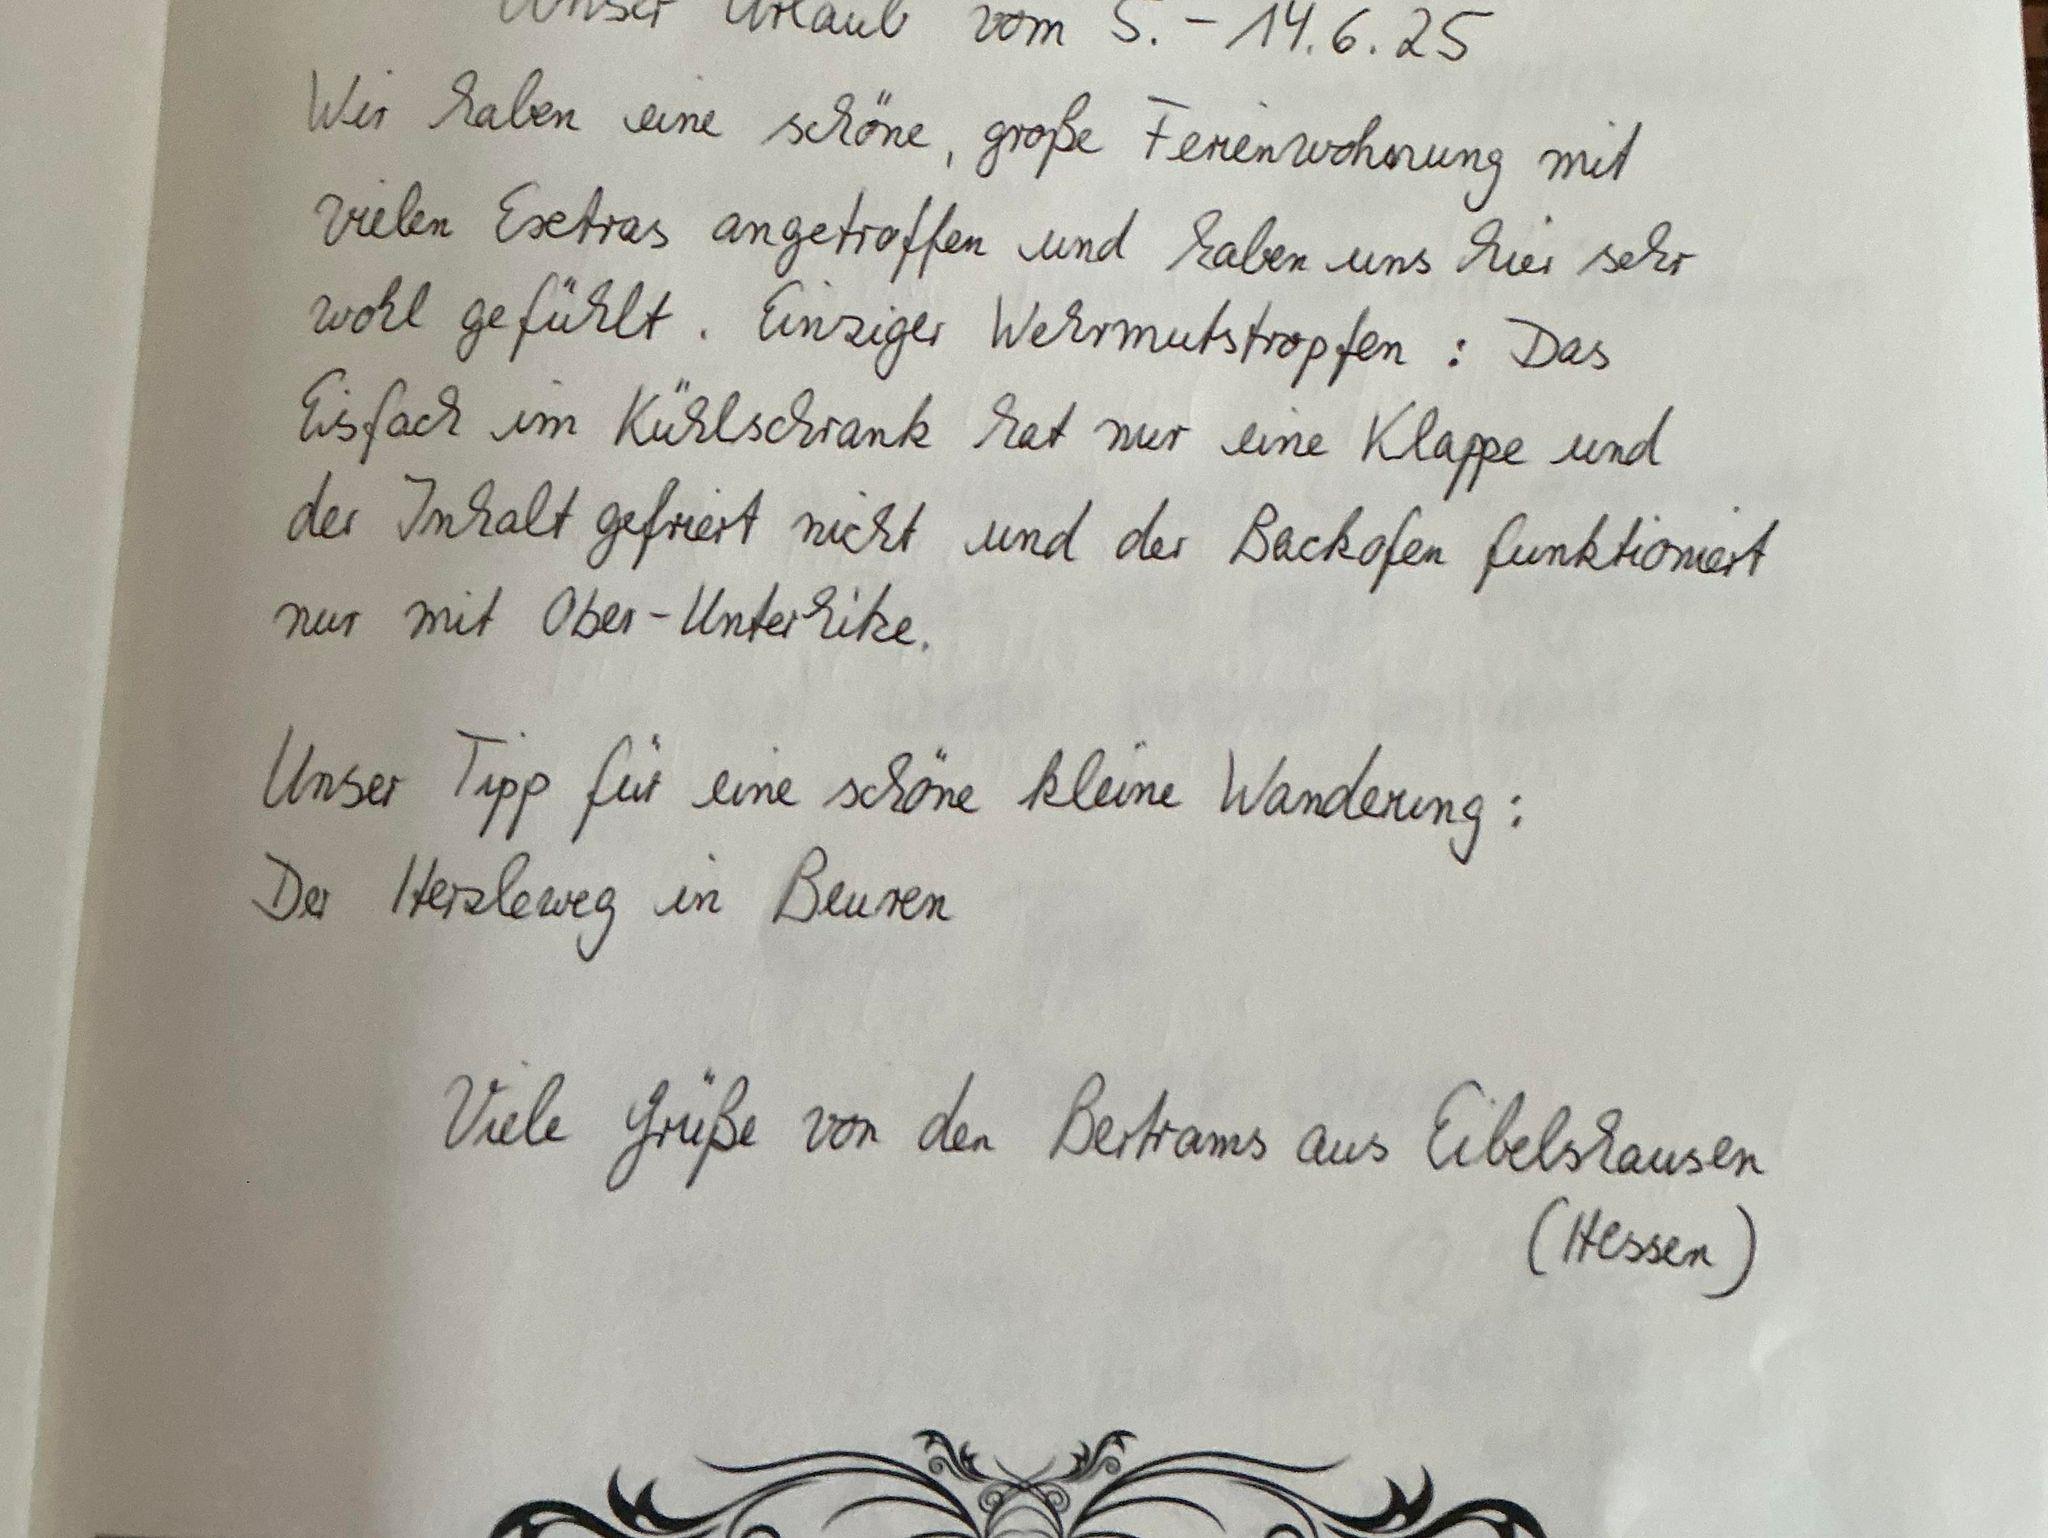 Unser Urlaub vom 5. - 14.6.25
Wir haben eine schöne, große Ferienwohnung mit
vielen Exctras angetroffen und haben uns hier sehr
wohl gefühlt. Einziger Wehrmutstropfen: Das
Eisfach im Kühlschrank hat nur eine Klappe und
der Inhalt gefriert nicht und der Backofen funktioniert
nur mit Ober-Unterhitze.
Unser Tipp für eine schöne kleine Wanderung:
Der Herzleweg in Beuren
Viele Grüße von den Bertrams aus Eibelshausen
(Hessen)